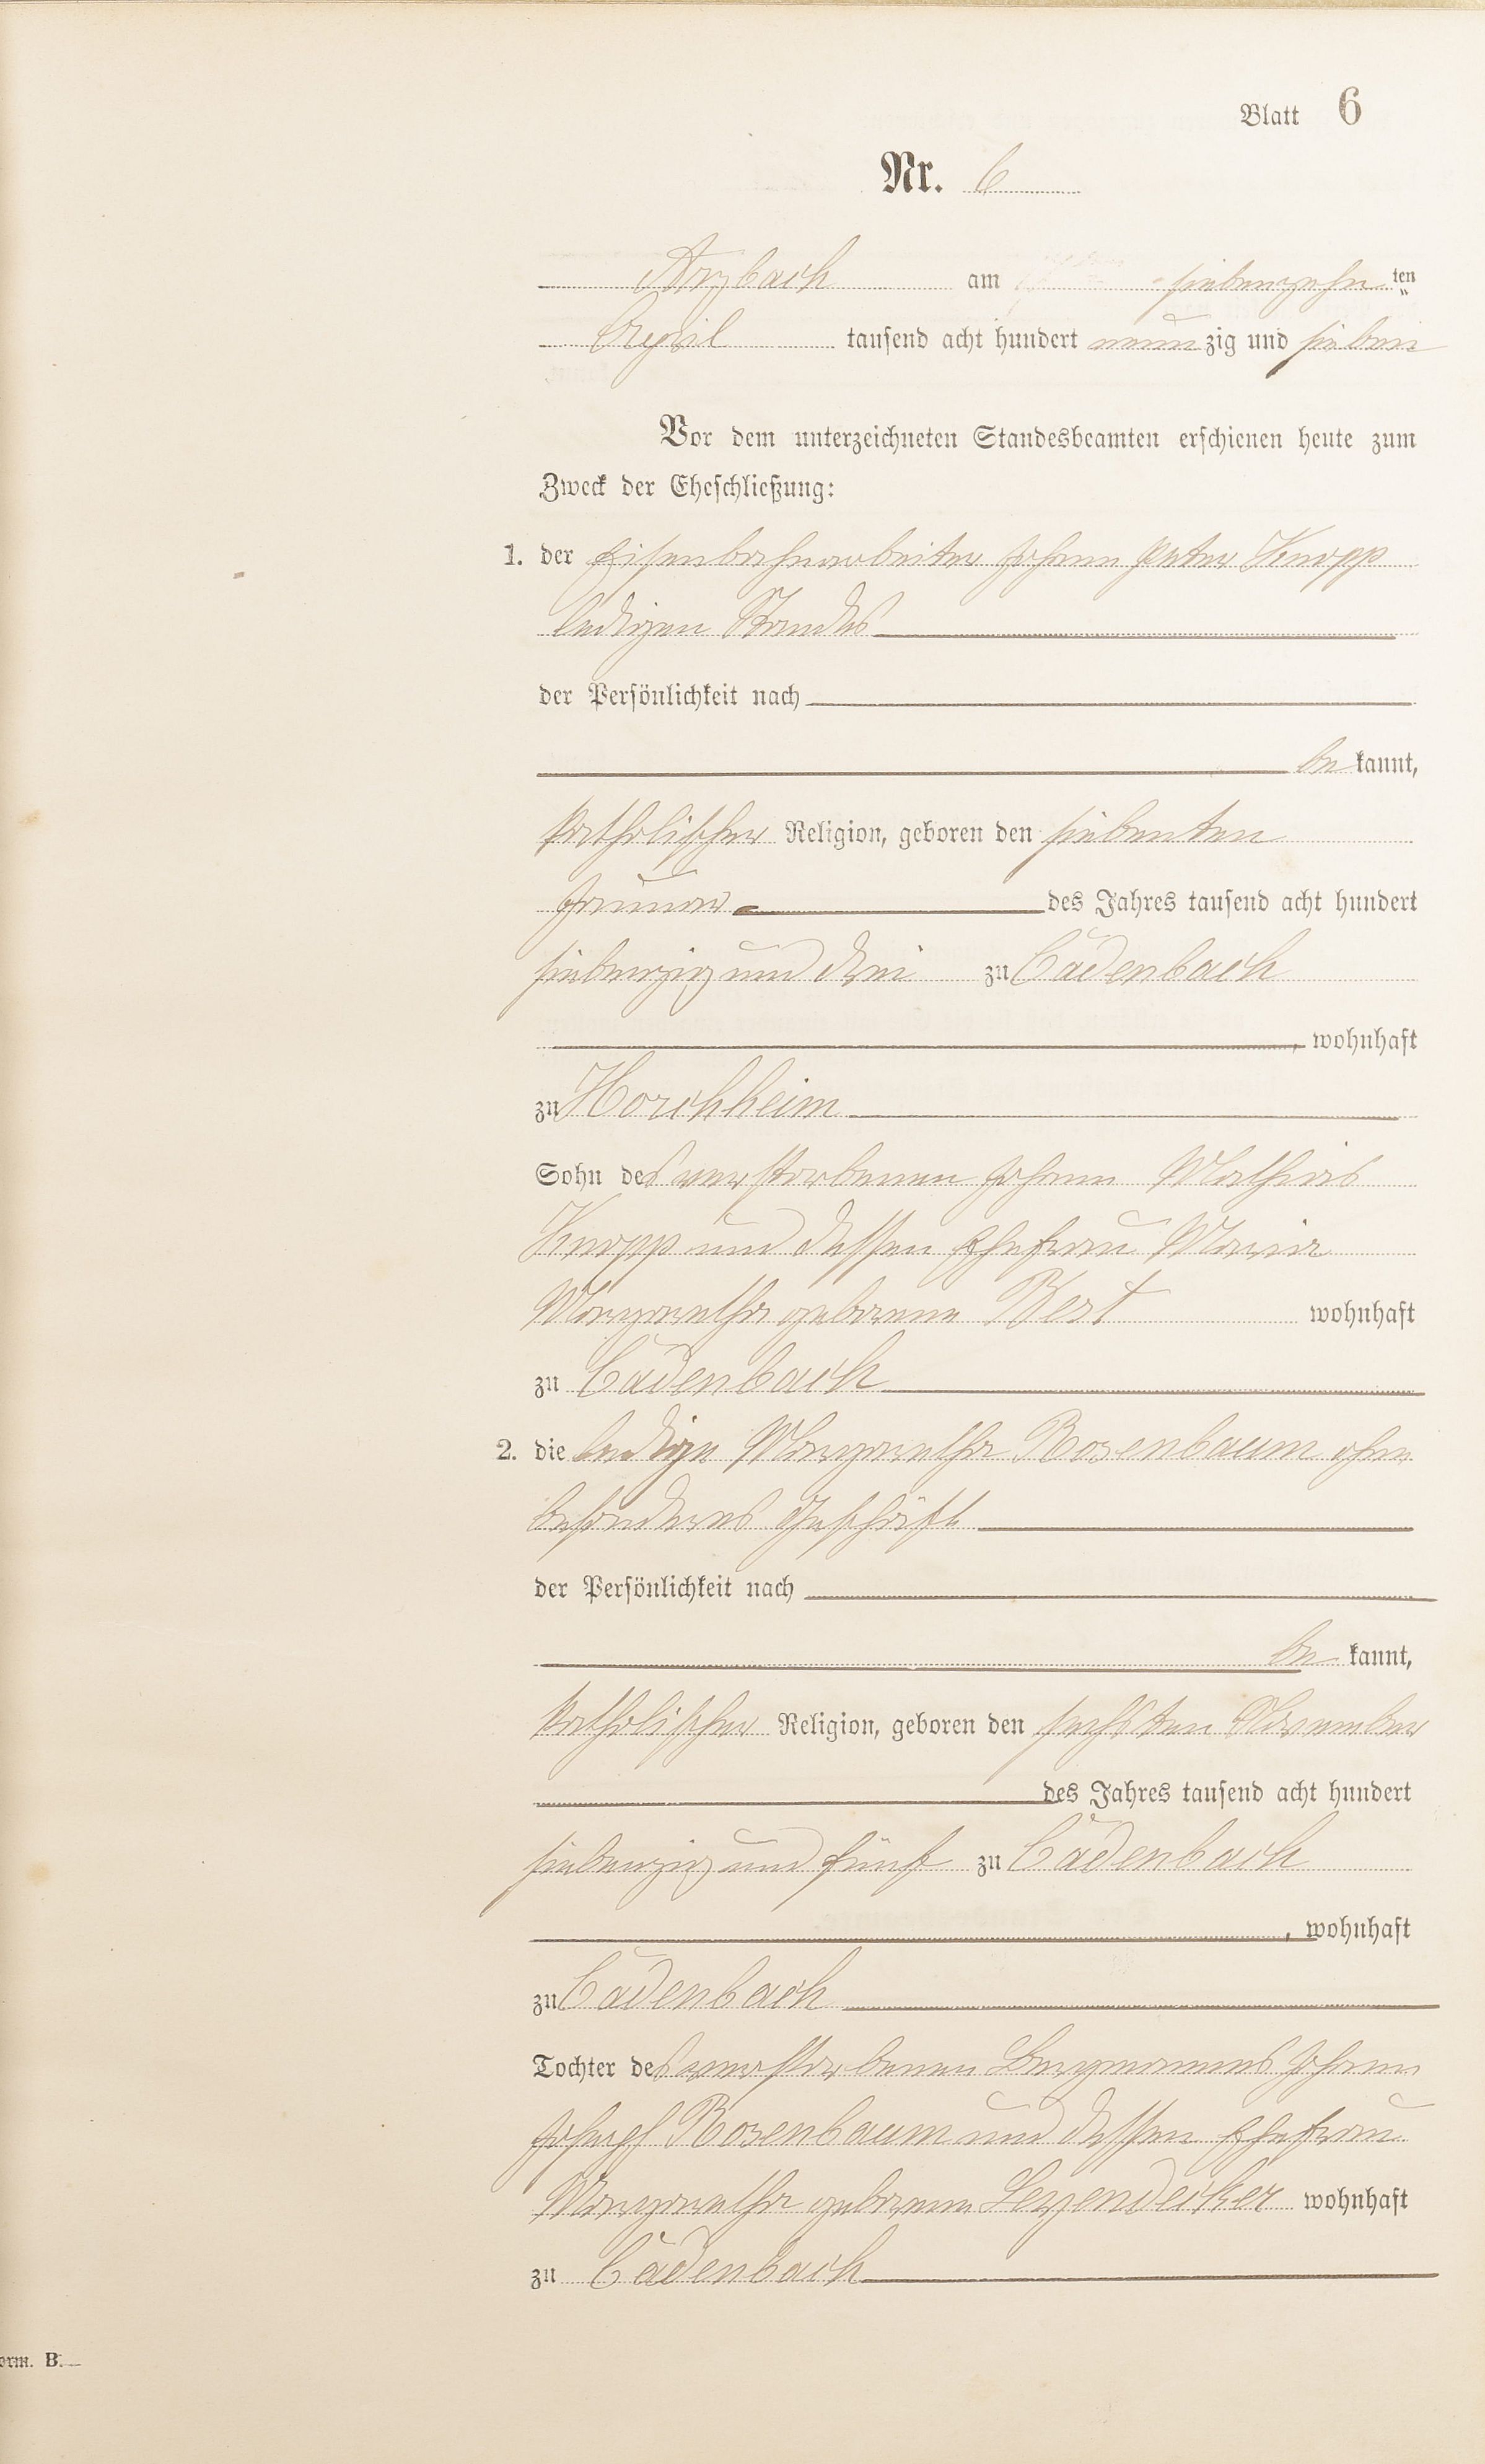 Blatt 6
Nr. 6
Arzbach am siebenzehnten
April tausend acht hundert neunzig und sieben
Vor dem unterzeichneten Standesbeamten erschienen heute zum
Zweck der Eheschließung:
1. der Eisenbahnarbeiter Johann Peter Knopp
ledigen Standes
der Persönlichkeit nach
be kannt,
katholischer Religion, geboren den siebenten
Januar des Jahres tausend acht hundert
siebenzig und drei zu Cadenbach
, wohnhaft
zu Horchheim
Sohn des verstorbenen Johann Mathias
Knopp und dessen Ehefrau Maria
Margaretha geborene Best wohnhaft
zu Cadenbach
2. die ledige Margaretha Rosenbaum ohne
besonderes Geschäft
der Persönlichkeit nach
be kannt,
katholischer Religion, geboren den sechsten November
des Jahres tausend acht hundert
siebenzig und fünf zu Cadenbach
, wohnhaft
zu Cadenbach
Tochter des verstorbenen Bergmannes Johann
Joseph Rosenbaum und dessen Ehefrau
Margaretha geborene Leyendecker wohnhaft
zu Cadenbach
orm. B.